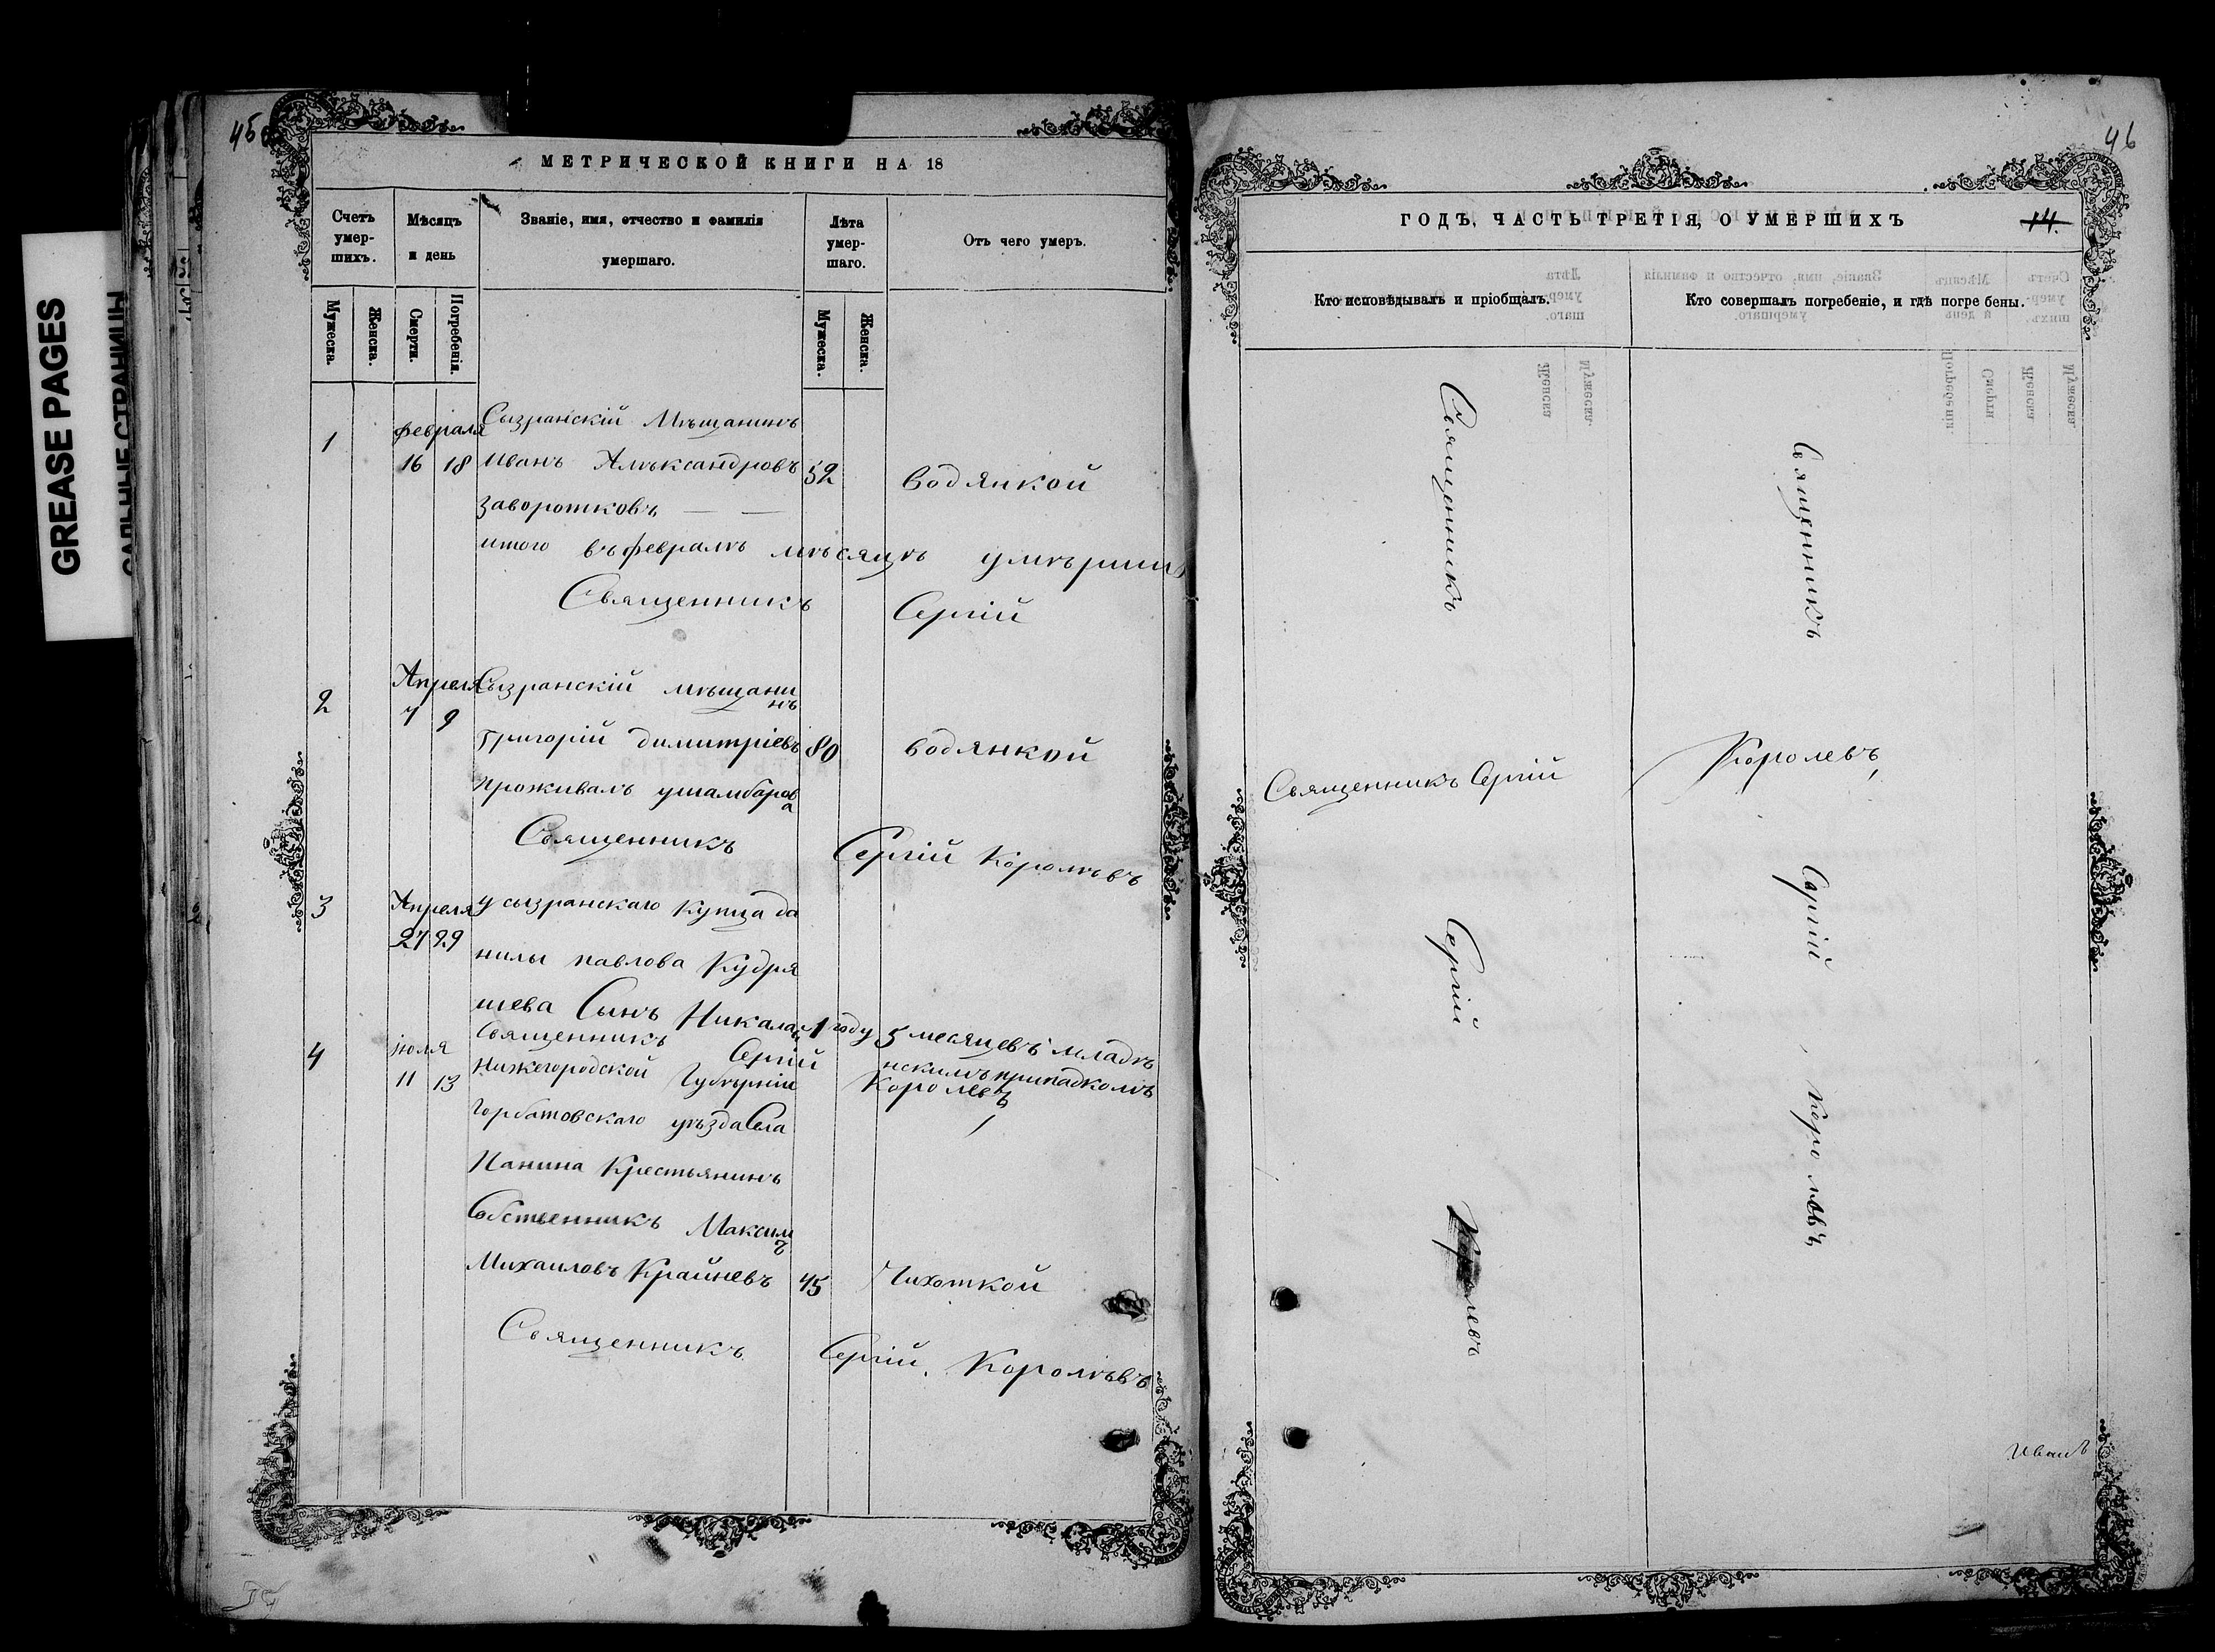 GREASE PAGES
САЛЬНЫЕ СТРАНИЦЫ
45
МЕТРИЧЕСКОЙ КНИГИ НА 18
Счетъ умер-шихъ.
Мѣсяцъ и день
Званіе, имя, отчество и фамилія умершаго.
Лѣта умер-шаго.
Отъ чего умеръ.
Мужеска.
Женска.
Смерти.
Погребенія.
Мужеска.
Женска.
1 февраля Сызранскій Мѣщанинъ
16 18 Иванъ Алѣксандровъ 52 водянкой
Заворотковъ — —
итого въ февралѣ мѣсяцѣ умѣрши
Священникъ Сергій
2 Апреля Сызранскій мѣщанинъ
7 9
Григорій димитріевъ 80 водянкой
проживалъ
Священникъ Сергій Королѣвъ
3 Апреля у сызранскаго купца да
27 29
нилы павлова Кудря
шева Сынъ Никалай 1 году 5 месяцевъ младѣ
нскимъ припадкомъ
Священникъ Сергій Королевъ
4 июля Нижегородской Губѣрніи
11 13
Горбатовскаго уѣзда Села
Панина Крестьянинъ
Собственникъ Максимъ
Михаиловъ Крайневъ 45 Чихоткой
Священникъ Сергій. Королѣвъ
46
ГОДЪ, ЧАСТЬ ТРЕТІЯ, О УМЕРШИХЪ
14.
Кто исповѣдывалъ и пріобщалъ.
Кто совершалъ погребеніе, и гдѣ погребены.
Священникъ Сергій Королевъ
Священникъ Сергій Королѣвъ
Священникъ Сергій Королевъ
Иванъ